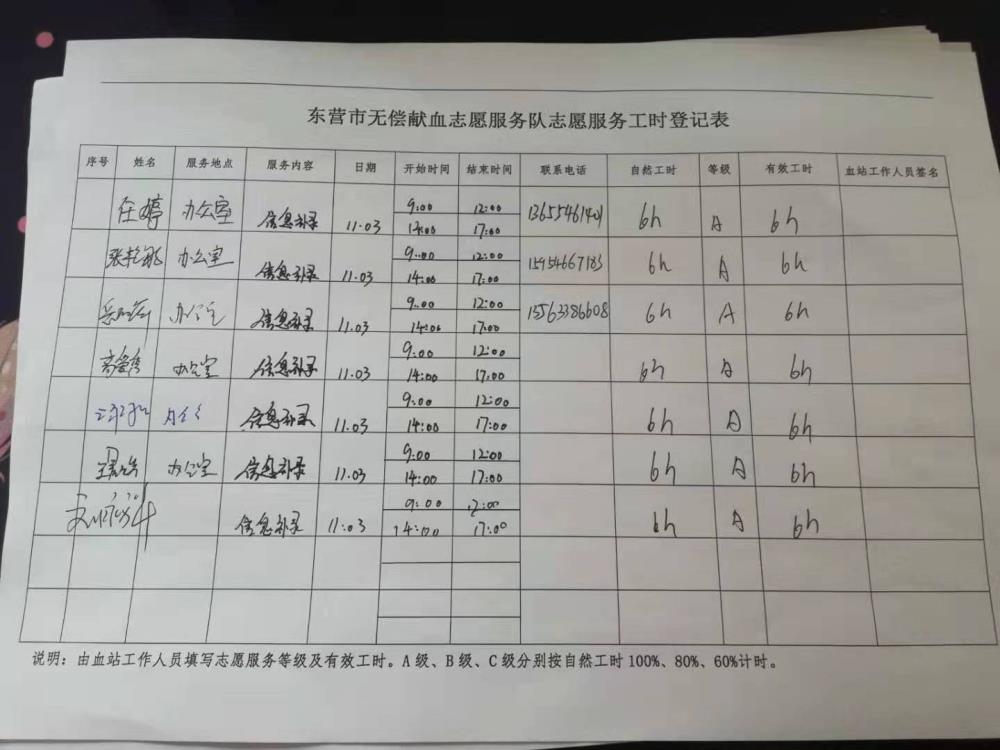 东营市无偿献血志愿服务队志愿服务工时登记表
序号 姓名 服务地点 服务内容 日期 开始时间 结束时间 联系电话 自然工时 等级 有效工时 血站工作人员签名
任婷 办公室 信息补录 11.03 9:00 12:00 13655461401 6h A 6h
14:00 17:00
办公室 信息补录 11.03 9:00 12:00 15954667183 6h A 6h
14:00 17:00
办公室 信息补录 11.03 9:00 12:00 13563386608 6h A 6h
14:00 17:00
办公室 信息补录 11.03 9:00 12:00 6h A 6h
14:00 17:00
信息补录 11.03 9:00 12:00 6h A 6h
14:00 17:00
办公室 信息补录 11.03 9:00 12:00 6h A 6h
14:00 17:00
信息补录 11.03 9:00 12:00 6h A 6h
14:00 17:00
说明：由血站工作人员填写志愿服务等级及有效工时。A级、B级、C级分别按自然工时100%、80%、60%计时。